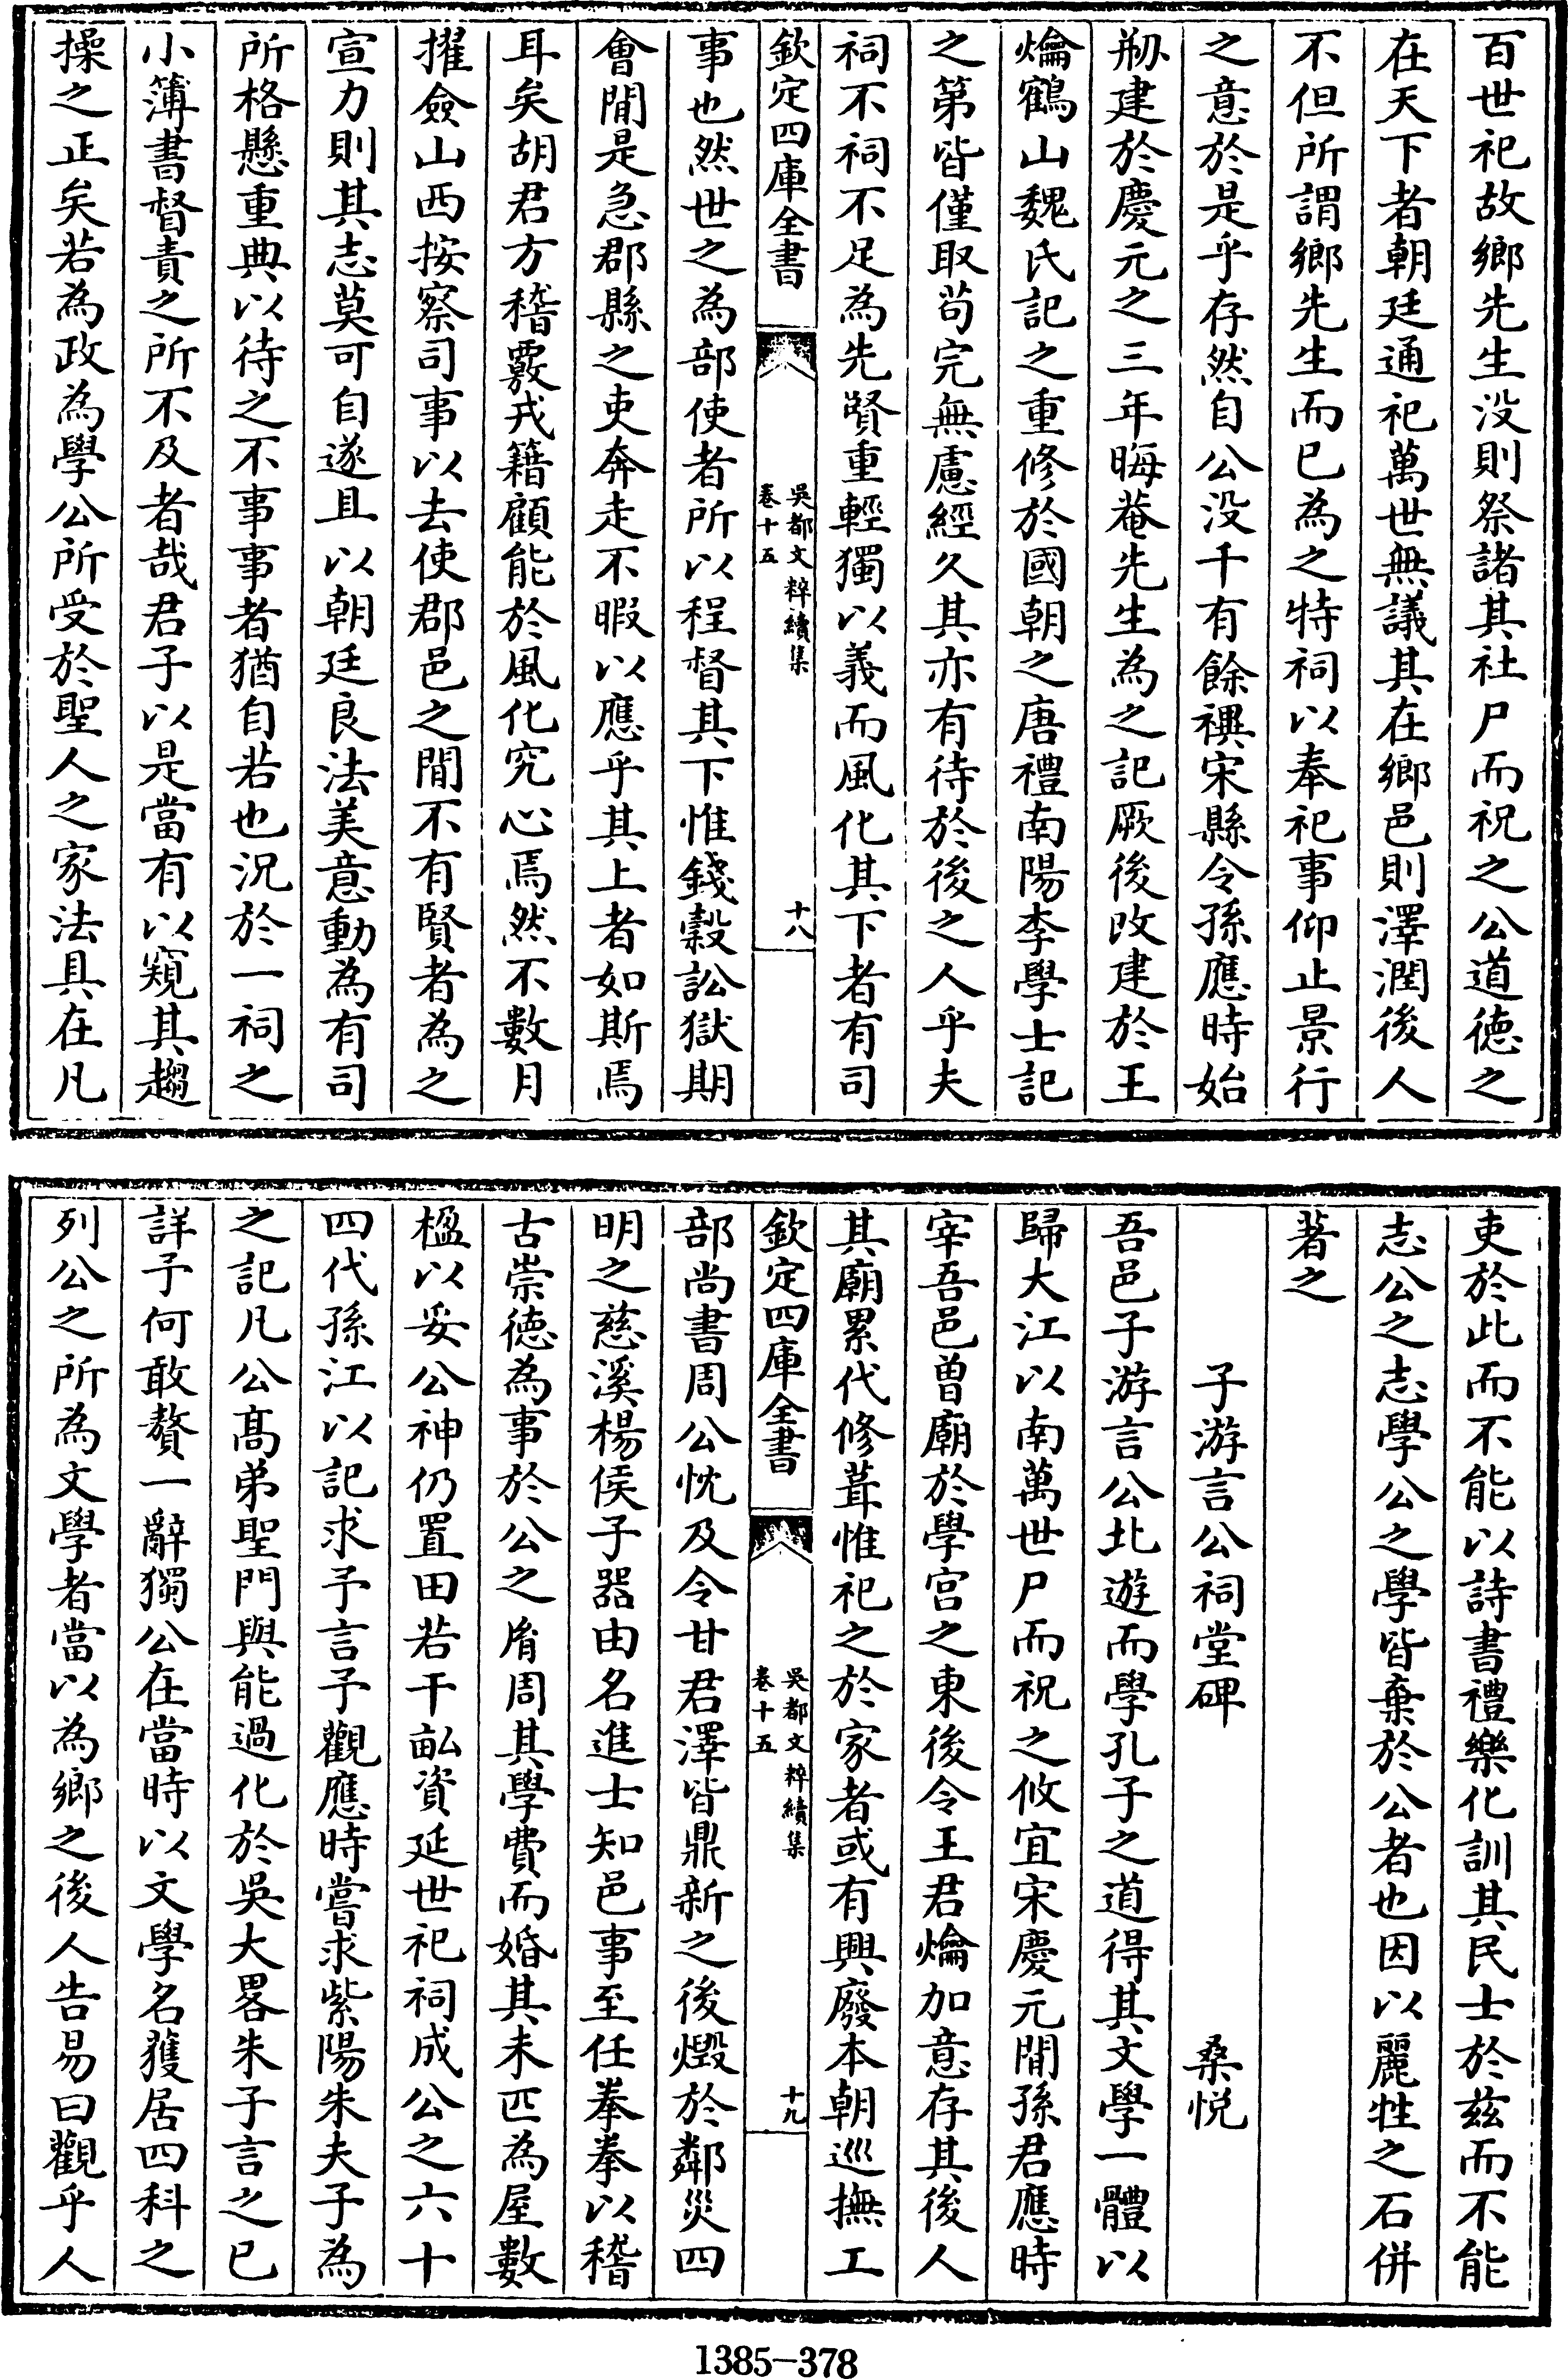 百世祀故鄉先生没則祭諸其社尸而祝之公道徳之
在天下者朝廷通祀萬世無議其在鄉邑則澤潤後人
不但所謂鄉先生而已為之特祠以奉祀事仰止景行
之意於是乎存然自公没千有餘禩宋縣令孫應時始
剏建於慶元之三年晦菴先生為之記厥後改建於王
爚鶴山魏氏記之重修於國朝之唐禮南陽李學士記
之第皆僅取茍完無慮經久其亦有待於後之人乎夫
祠不祠不足為先賢重輕獨以義而風化其下者有司
欽定四庫全書
吳都文粹續集
卷十五
十八
事也然世之為部使者所以程督其下惟錢穀訟獄期
會閒是急郡縣之吏奔走不暇以應乎其上者如斯焉
耳矣胡君方稽覈戎籍顧能於風化究心焉然不數月
擢僉山西按察司事以去使郡邑之閒不有賢者為之
宣力則其志莫可自遂且以朝廷良法美意動為有司
所格懸重典以待之不事事者猶自若也況於一祠之
小簿書督責之所不及者哉君子以是當有以窺其趨
操之正矣若為政為學公所受於聖人之家法具在凡
吏於此而不能以詩書禮樂化訓其民士於兹而不能
志公之志學公之學皆棄於公者也因以麗牲之石併
著之
子游言公祠堂碑 桑悦
吾邑子游言公北遊而學孔子之道得其文學一體以
歸大江以南萬世尸而祝之攸宜宋慶元閒孫君應時
宰吾邑曽廟於學宫之東後令王君爚加意存其後人
其廟累代修葺惟祀之於家者或有興廢本朝巡撫工
欽定四庫全書
吳都文粹續集
卷十五
十九
部尚書周公忱及令甘君澤皆鼎新之後燬於鄰災四
明之慈溪楊侯子器由名進士知邑事至任拳拳以稽
古崇徳為事於公之胤周其學費而婚其未匹為屋數
楹以妥公神仍置田若干畝資延世祀祠成公之六十
四代孫江以記求予言予觀應時嘗求紫陽朱夫子為
之記凡公髙弟聖門與能過化於吳大畧朱子言之已
詳予何敢贅一辭獨公在當時以文學名獲居四科之
列公之所為文學者當以為鄉之後人告易曰觀乎人
1385-378